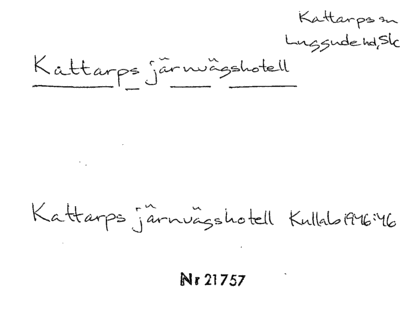 Kattarps sn
Luggude hd, Sk
Kattarps järnvägshotell
Kattarps järnvägshotell Kullab 1946:46
Nr 21757